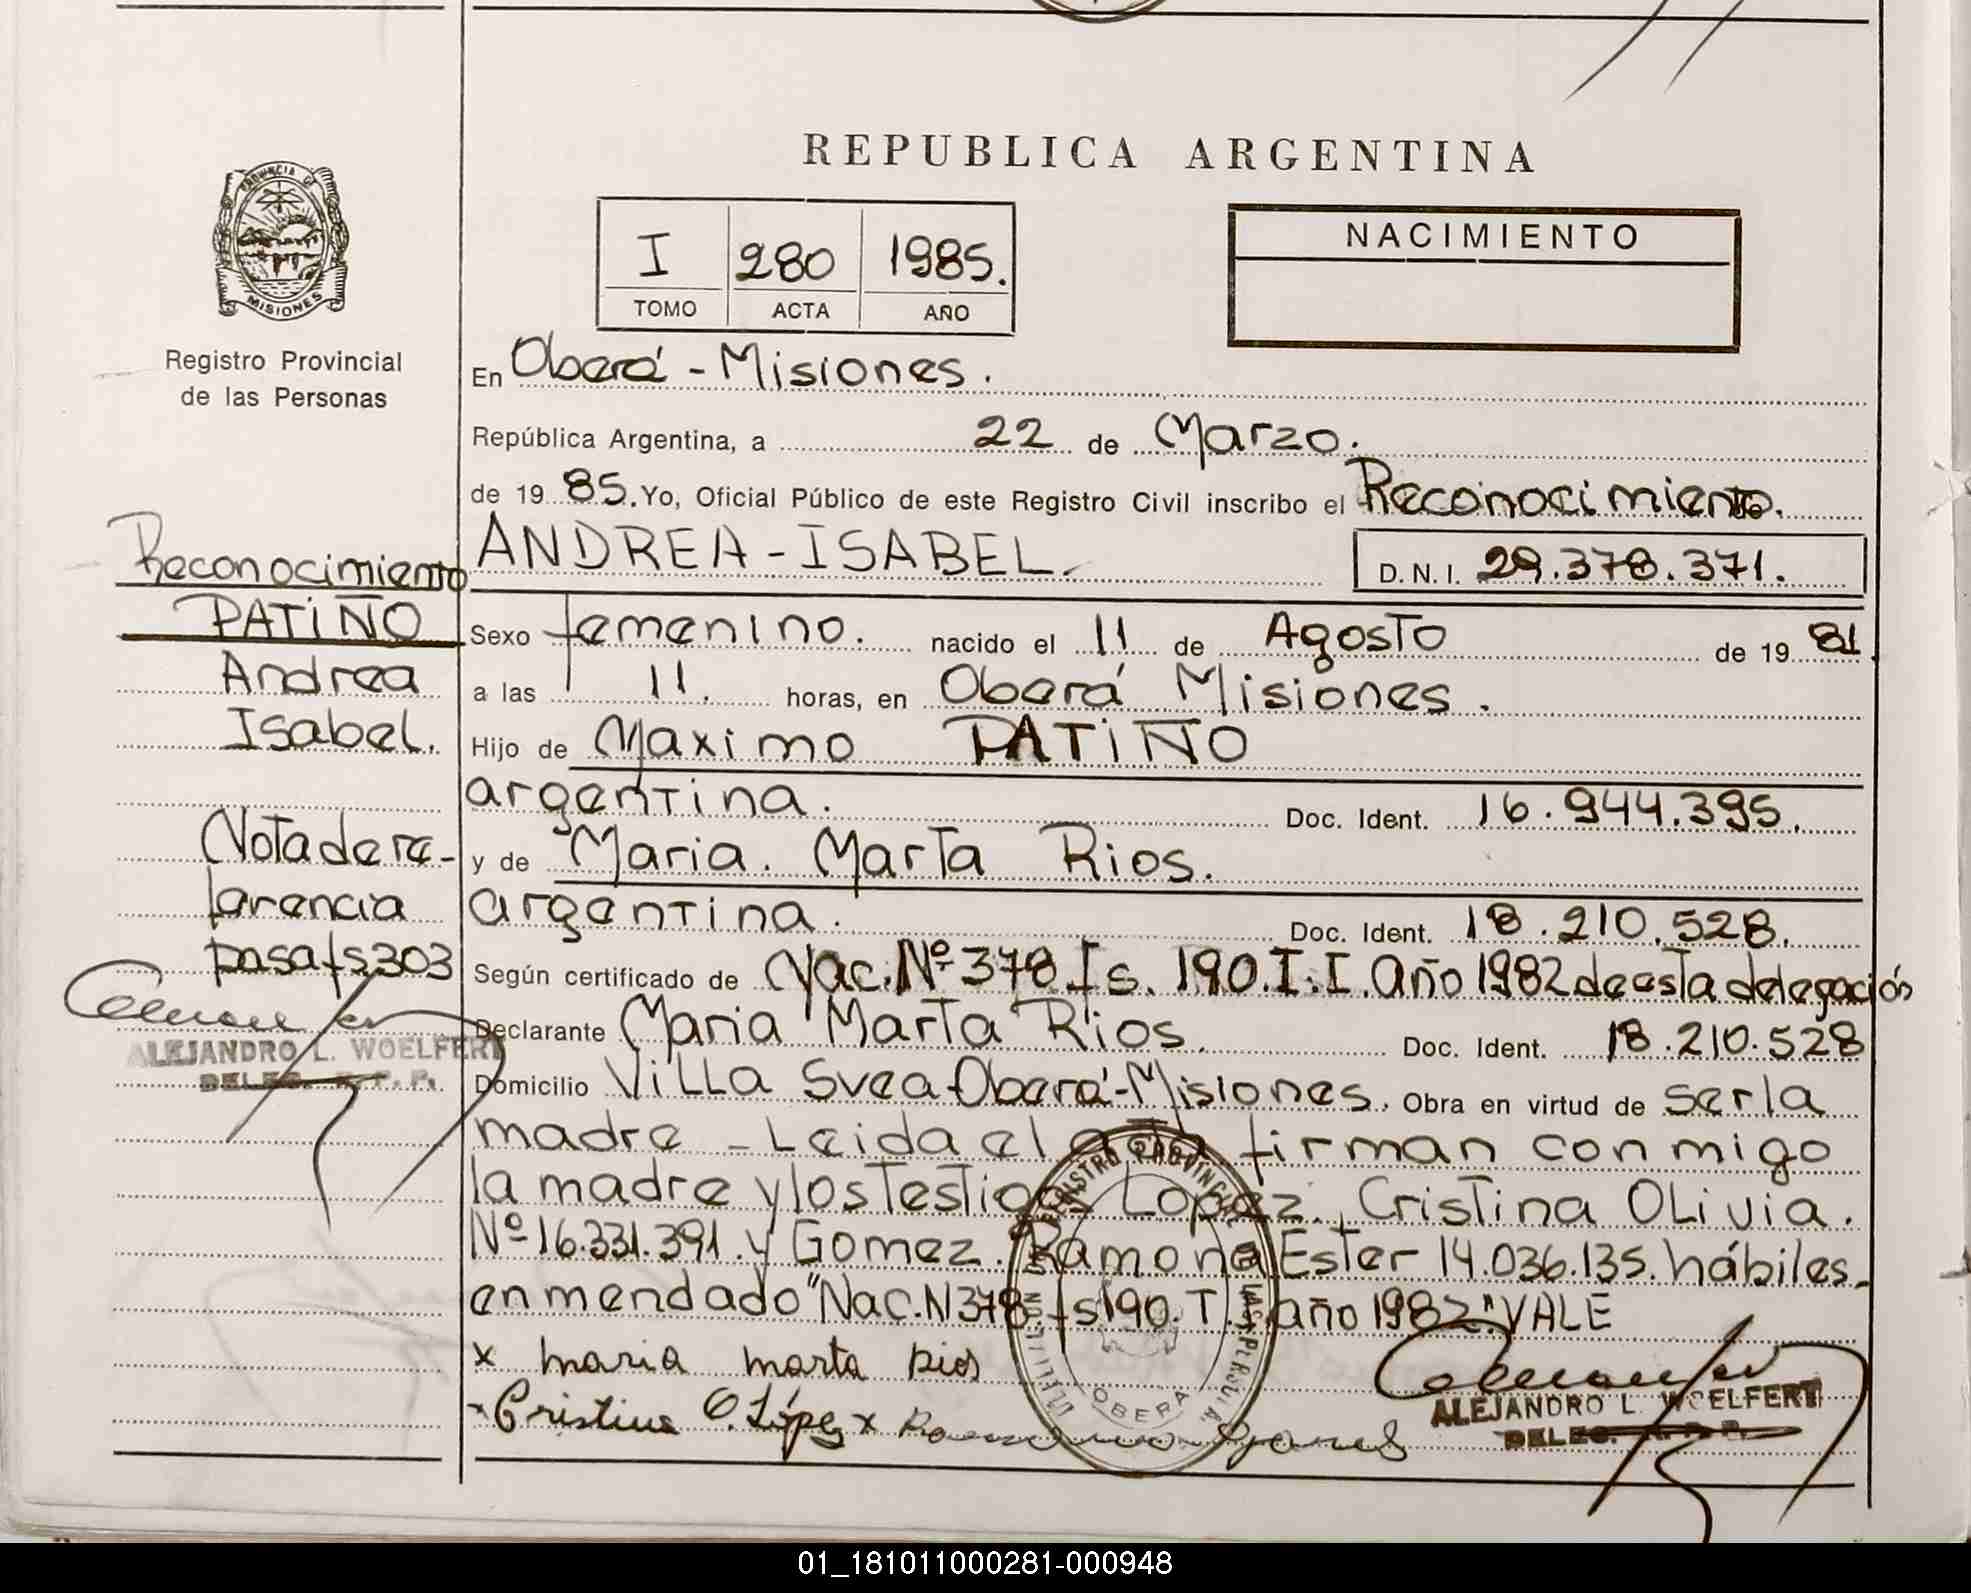 REPUBLICA ARGENTINA
PROVINCIA DE
MISIONES
Registro Provincial
de las Personas
I 280 1985.
TOMO ACTA AÑO
NACIMIENTO
En Oberá - Misiones.
República Argentina, a 22 de Marzo.
de 19 85. Yo, Oficial Público de este Registro Civil inscribo el Reconocimiento.
ANDREA - ISABEL.
D.N.I. 29.378.371.
Sexo femenino. nacido el 11 de Agosto de 19 81
a las 11. horas, en Oberá Misiones.
Hijo de Maximo PATIÑO
argentina. Doc. Ident. 16.944.395.
y de Maria. Marta Rios.
argentina. Doc. Ident. 18.210.528.
Según certificado de Nac. Nº 378 fs. 190. T. I. Año 1982 de esta delegación
Declarante Maria Marta Rios. Doc. Ident. 18.210.528
Domicilio Villa Svea Oberá - Misiones. Obra en virtud de ser la
madre - Leida el acta firman conmigo
la madre y los testigos Lopez. Cristina Olivia.
Nº 16.331.391. y Gomez. Ramona Ester 14.036.135. hábiles.
enmendado "Nac. N 378. fs 190. T. I. año 1982". VALE
x maria marta rios
x Cristina O. López x
ALEJANDRO L. WOELFERT
DELEG. R. P. P.
REGISTRO PROVINCIAL DE LAS PERSONAS
OBERA
Reconocimiento
PATIÑO
Andrea
Isabel.
Nota de re-
ferencia
pasa fs 303
ALEJANDRO L. WOELFERT
DELEG. R. P. P.
01_181011000281-000948